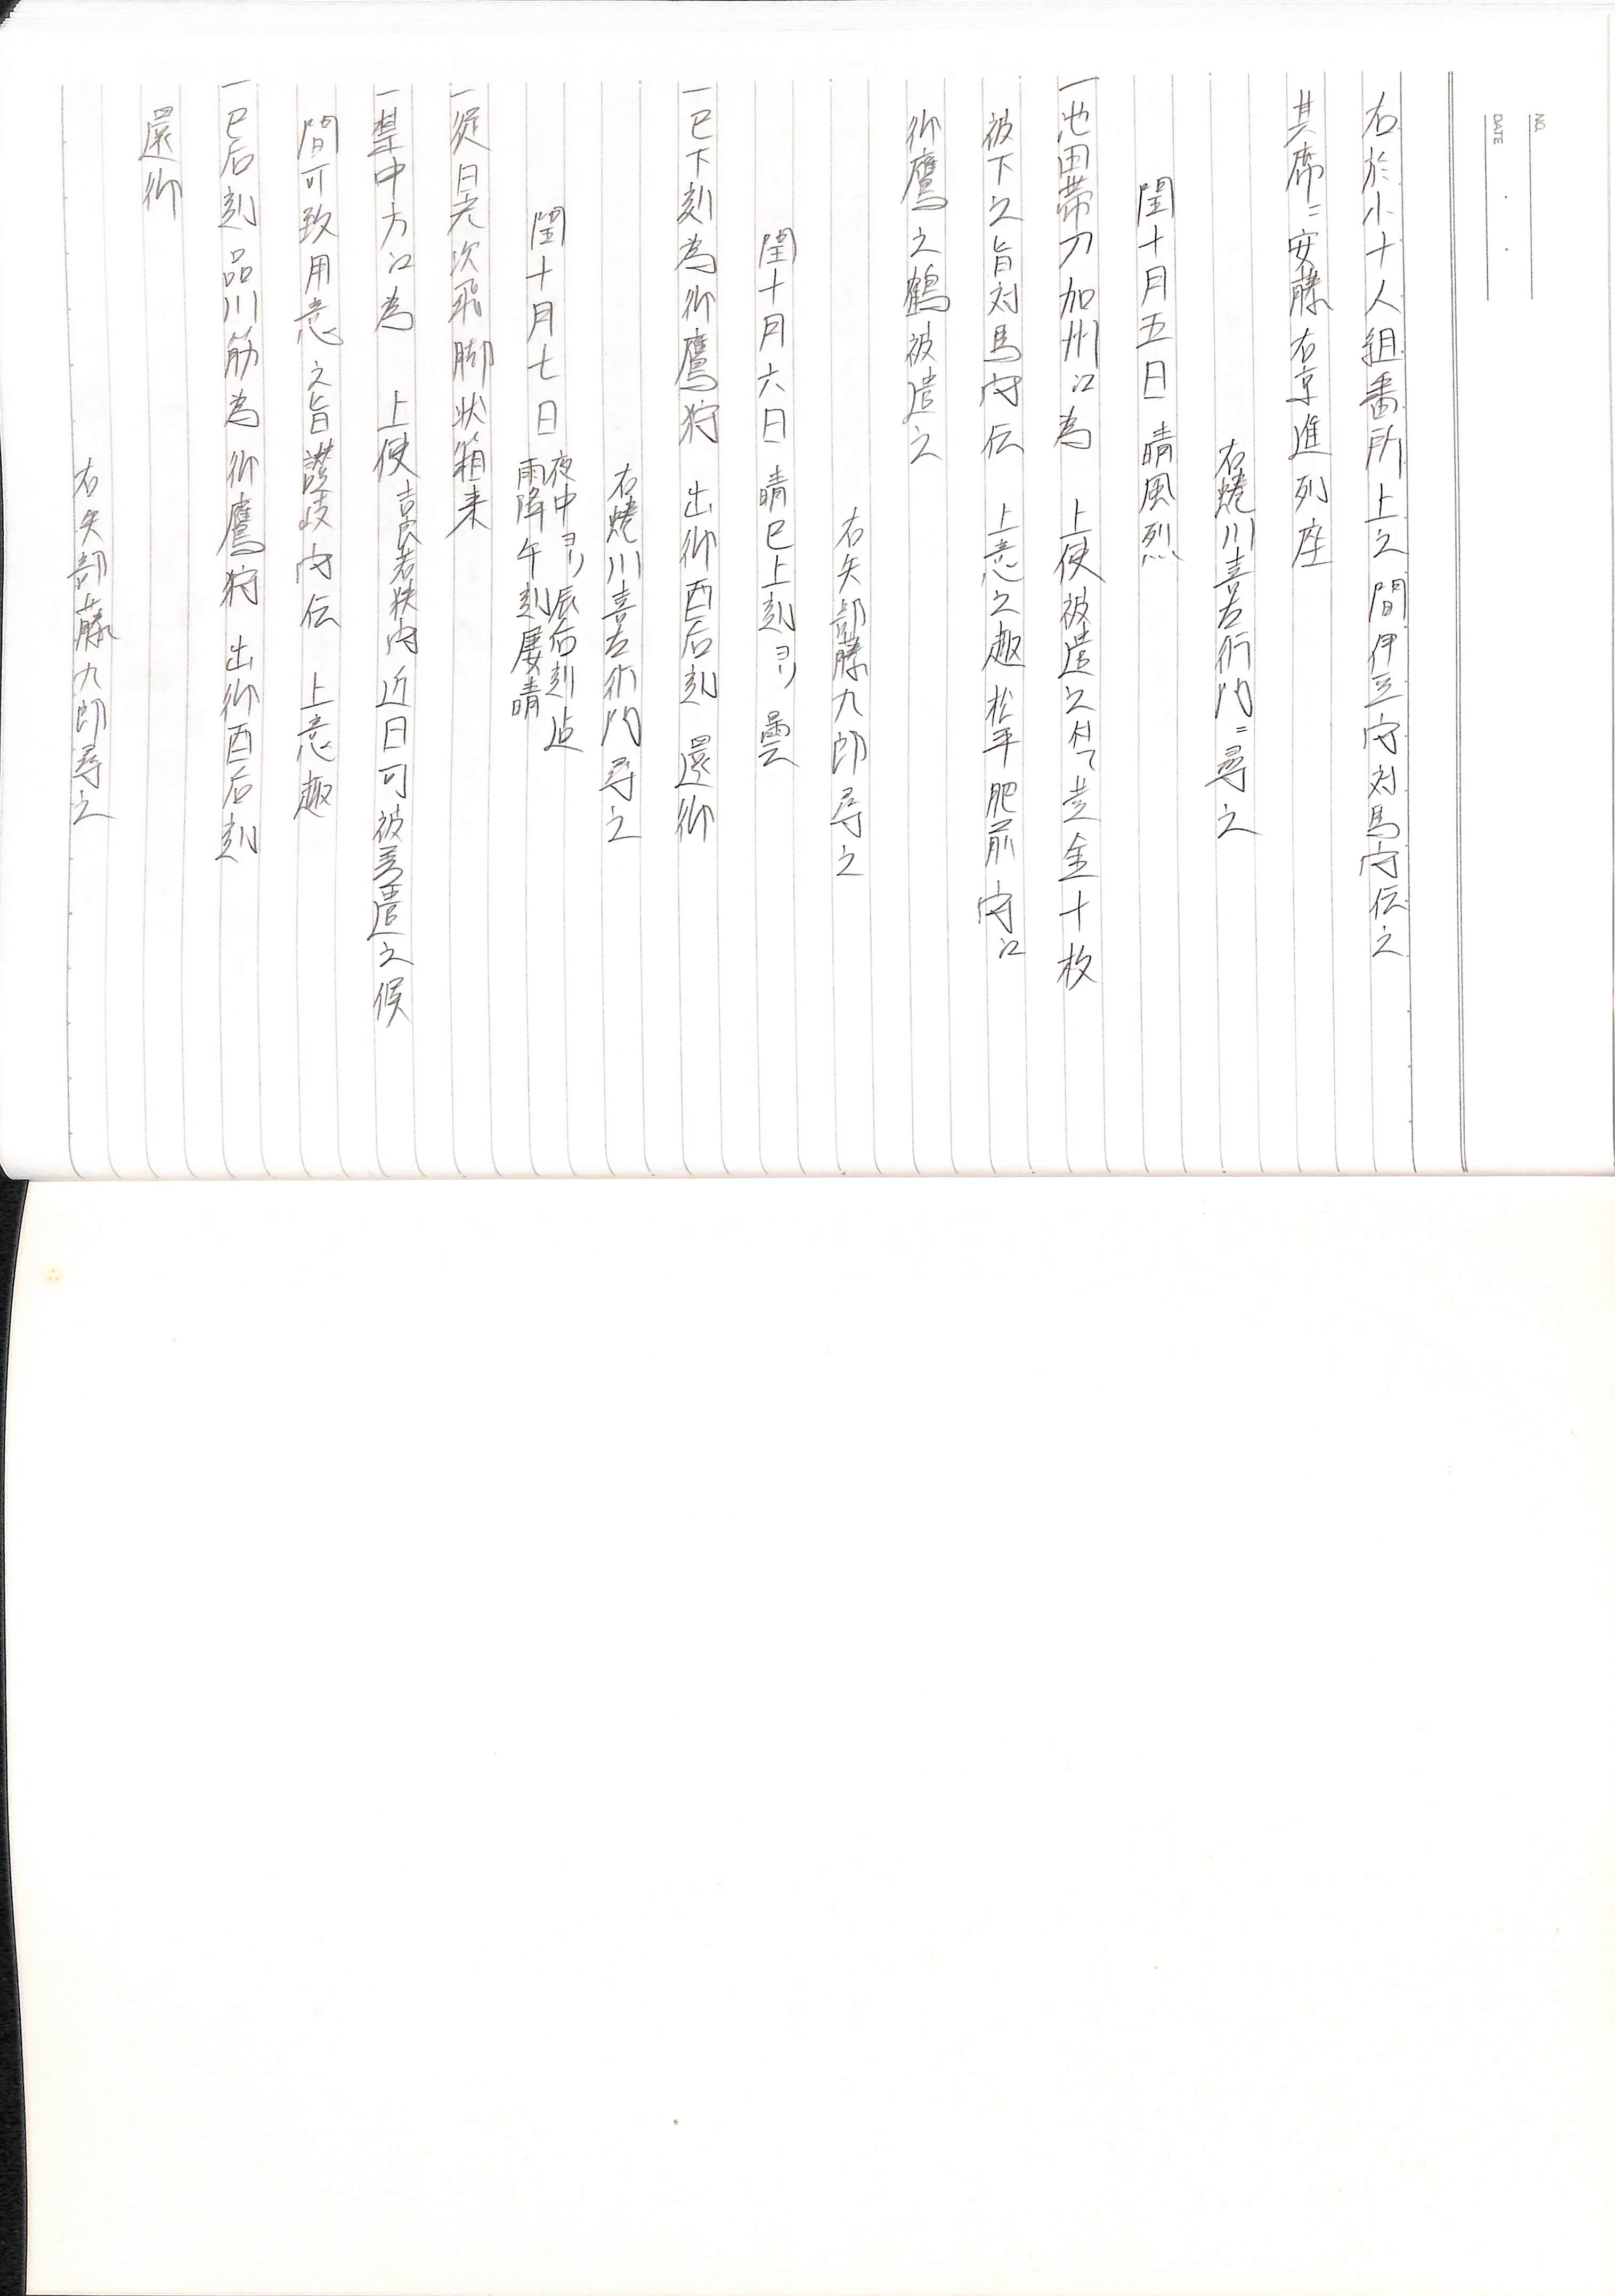 NO.
DATE
右於小十人組番所上之間伊豆守対馬守伝之
其席ニ安藤右京進列座
右蜷川喜左衛門ニ尋之
閏十月五日 晴風烈
一池田帯刀加州江為 上使被遣之付而黄金十枚
被下之旨対馬守伝 上意之趣松平肥前守江
御鷹之鶴被遣之
右矢部藤九郎尋之
閏十月六日 晴巳上刻ヨリ曇
一巳下刻為御鷹狩 出御酉后刻 還御
右蜷川喜左衛門尋之
閏十月七日 夜中ヨリ辰后刻迠
雨降午刻属晴
一従日光次飛脚状箱来
一禁中方江為 上使吉良若狭守近日可被差遣之候
間可致用意之旨讃岐守伝 上意趣
一巳后刻品川筋為御鷹狩 出御酉后刻
還御
右矢部藤九郎尋之